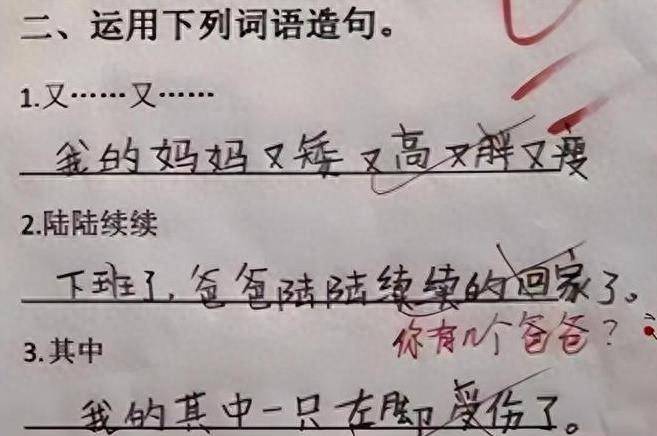 二、运用下列词语造句。
1.又……又……
我的妈妈又矮又高又胖又瘦
2.陆陆续续
下班了，爸爸陆陆续续的回家了。
你有几个爸爸？
3.其中
我的其中一只左脚受伤了。